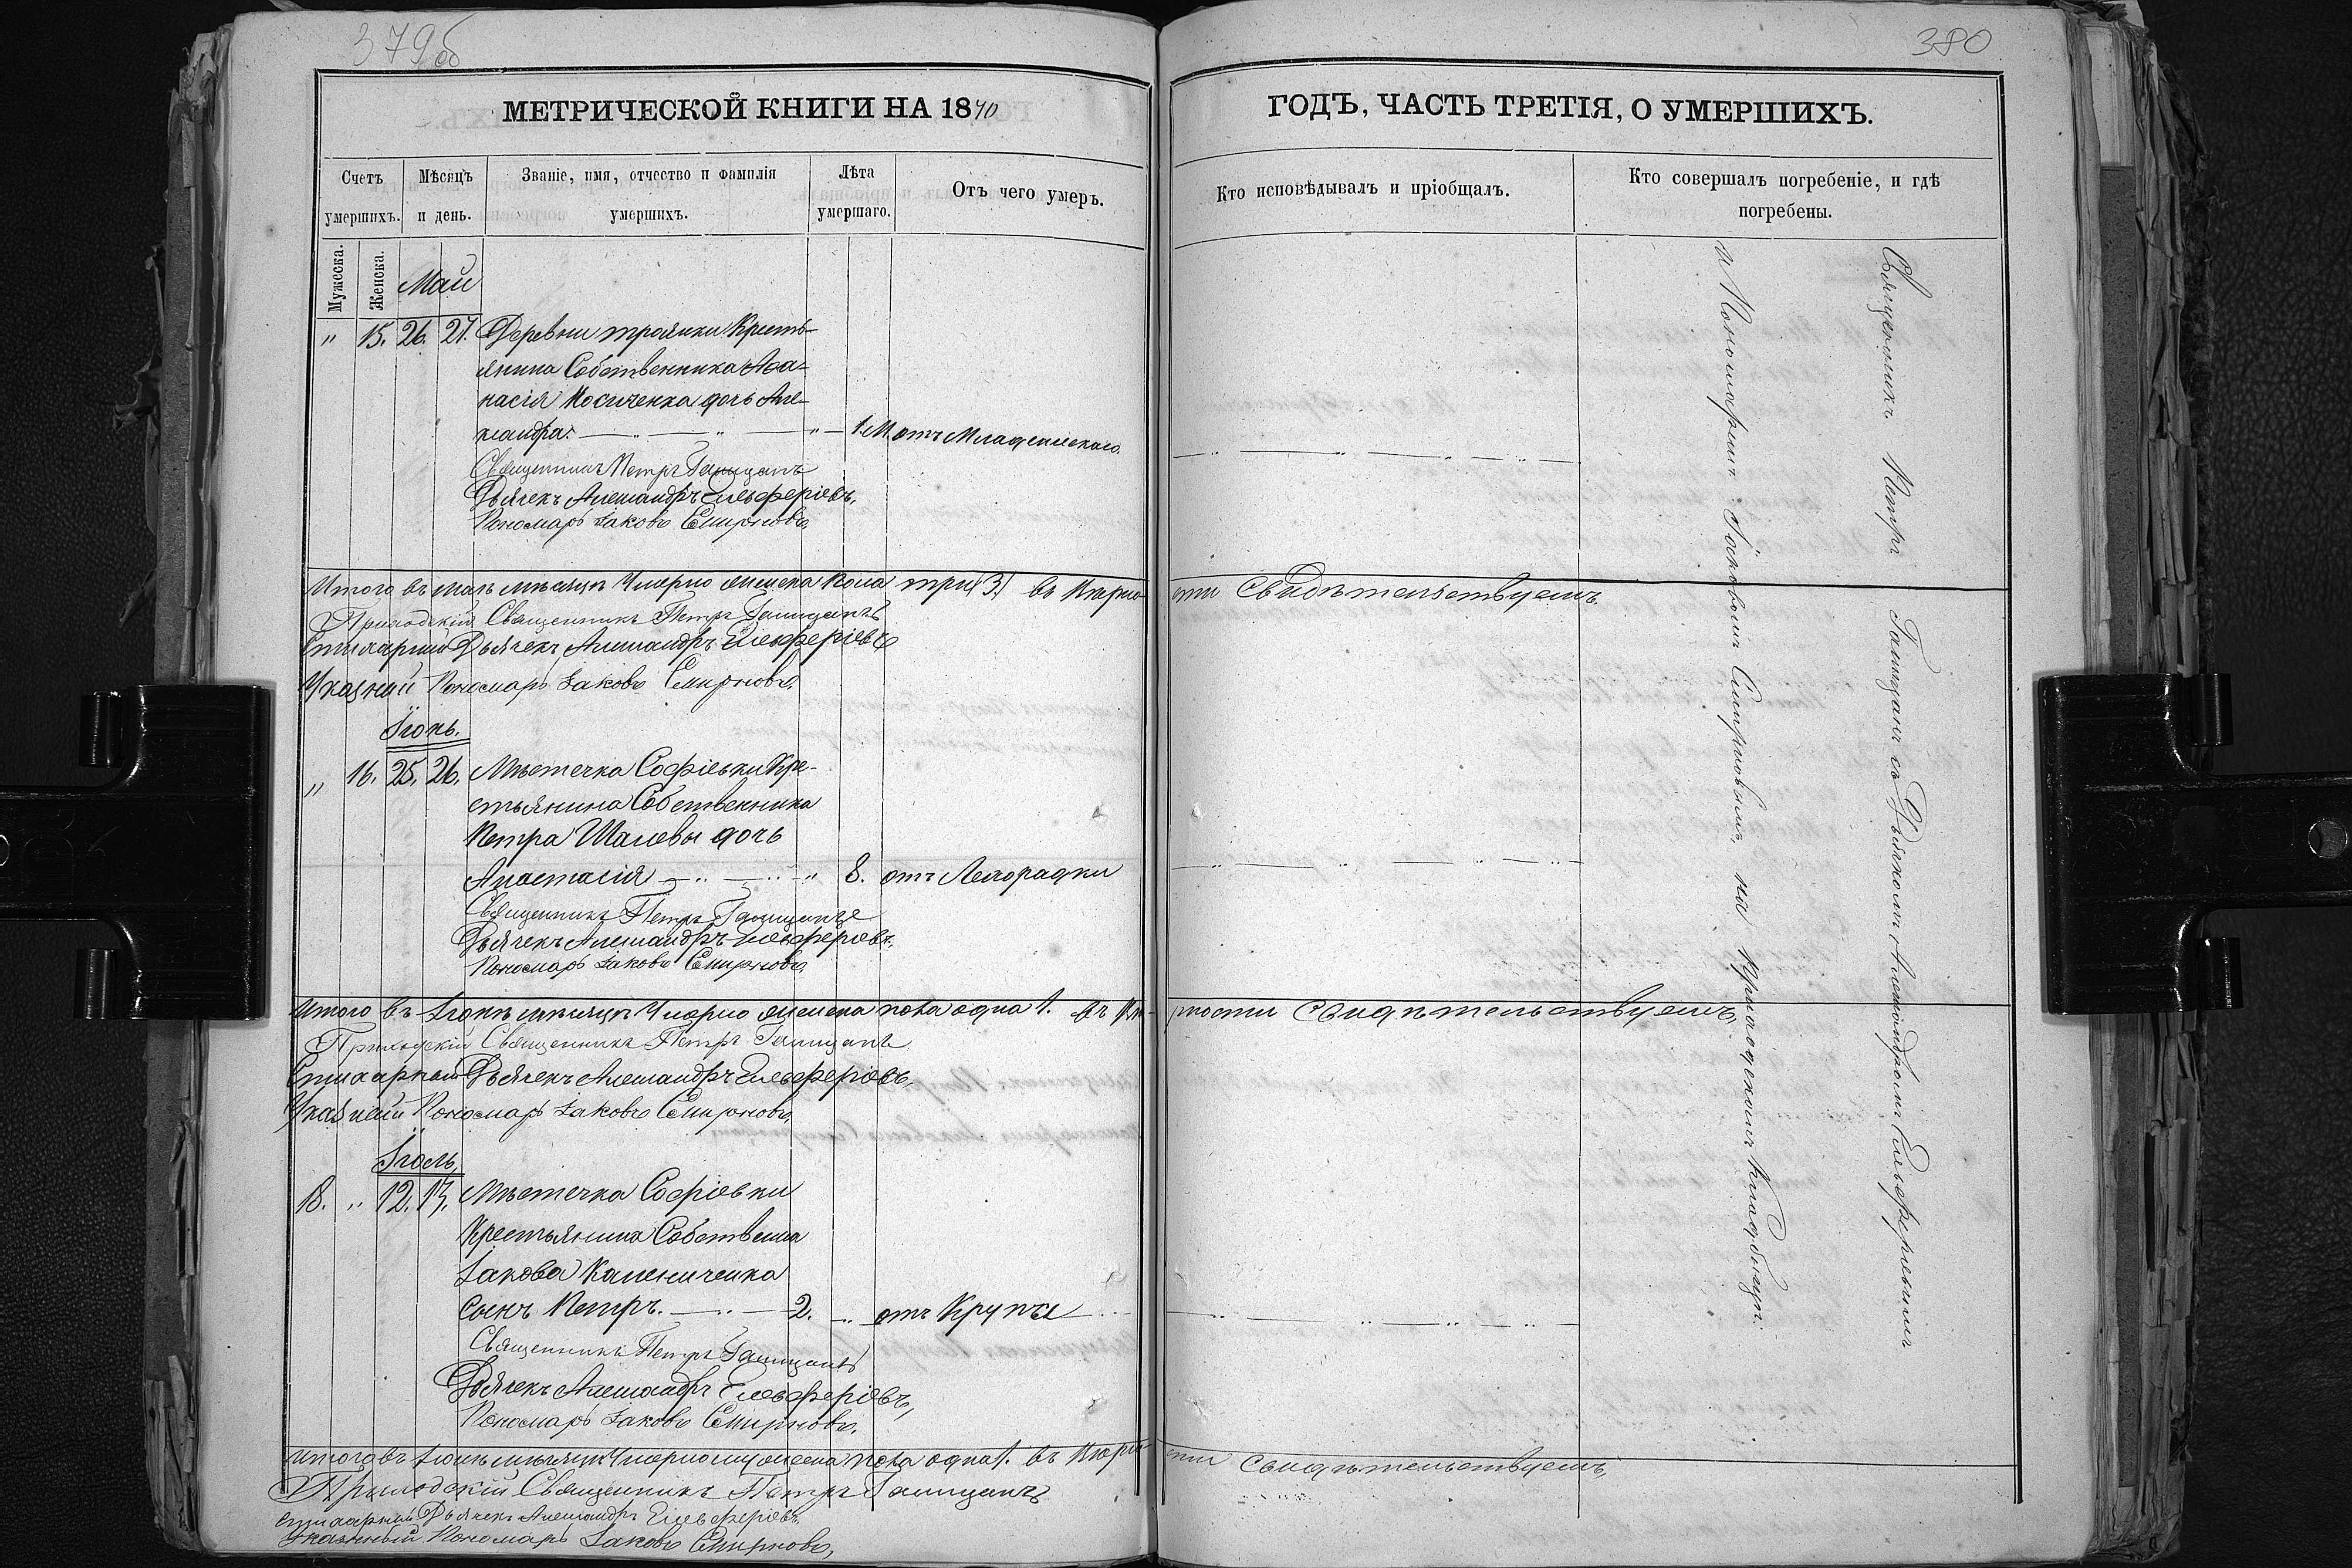 379об
380
МЕТРИЧЕСКОЙ КНИГИ НА 1870
ГОДЪ, ЧАСТЬ ТРЕТІЯ, О УМЕРШИХЪ.
Счетъ умершихъ.
Мѣсяцъ и день.
Званіе, имя, отчество и фамилія умершихъ.
Лѣта умершаго.
Отъ чего умеръ.
Кто исповѣдывалъ и пріобщалъ.
Кто совершалъ погребеніе, и гдѣ погребены.
Мужеска.
Женска.
Май
" 15. 26. 27. Деревни Троянки Кресть-
янина Собственника Афа-
насія Мосиченка дочь Але-
ксандра. 1.М. отъ Младенческаго.
Священникъ Петръ
Дьячекъ Александръ Елевферіевъ,
Пономарь Іаковъ Смирновъ,
Итого въ маѣ мѣсяцѣ Умерло женска пола три (3) въ вѣрно-
сти Свидѣтельствуемъ.
Приходскій Священникъ Петръ
Стихарный Дьячекъ Александръ Елевферіевъ
Указный Пономарь Іаковъ Смирновъ,
Іюнь.
" 16. 25. 26. Мѣстечка Софіевки Кре-
стьянина Собственника
Петра Шалевы дочь
Анастасія " 8. отъ Лихорадки
Священникъ Петръ
Дьячекъ Александръ Елевферіевъ.
Пономарь Іаковъ Смирновъ.
Итого въ Іюнѣ мѣсяцѣ Умерло женска пола одна 1. въ вѣ-
рности Свидѣтельствуемъ,
Приходскій Священникъ Петръ
Стихарный Дьячекъ Александръ Елевферіевъ,
Указный Пономарь Іаковъ Смирновъ,
Іюль,
18. " 12. 13. Мѣстечка Софіевки
Крестьянина Собственн
Іакова Калениченка
Сынъ Петръ. 2. отъ Крупы
Священникъ Петръ
Дьячекъ Александръ Елевферіевъ,
Пономарь Іаковъ Смирновъ.
Итого въ Іюлѣ мѣсяцѣ Умерло пола одна 1. въ вѣрно-
сти Свидѣтельствуемъ,
Приходскій Священникъ Петръ
Стихарный Дьячекъ Александръ Елевферіевъ.
Указный Пономарь Іаковъ Смирновъ,
Священникъ Петръ съ Дьячкомъ Александромъ Елевферіевымъ
и Пономаремъ Іаковомъ Смирновымъ, на приходскомъ Кладбищѣ.